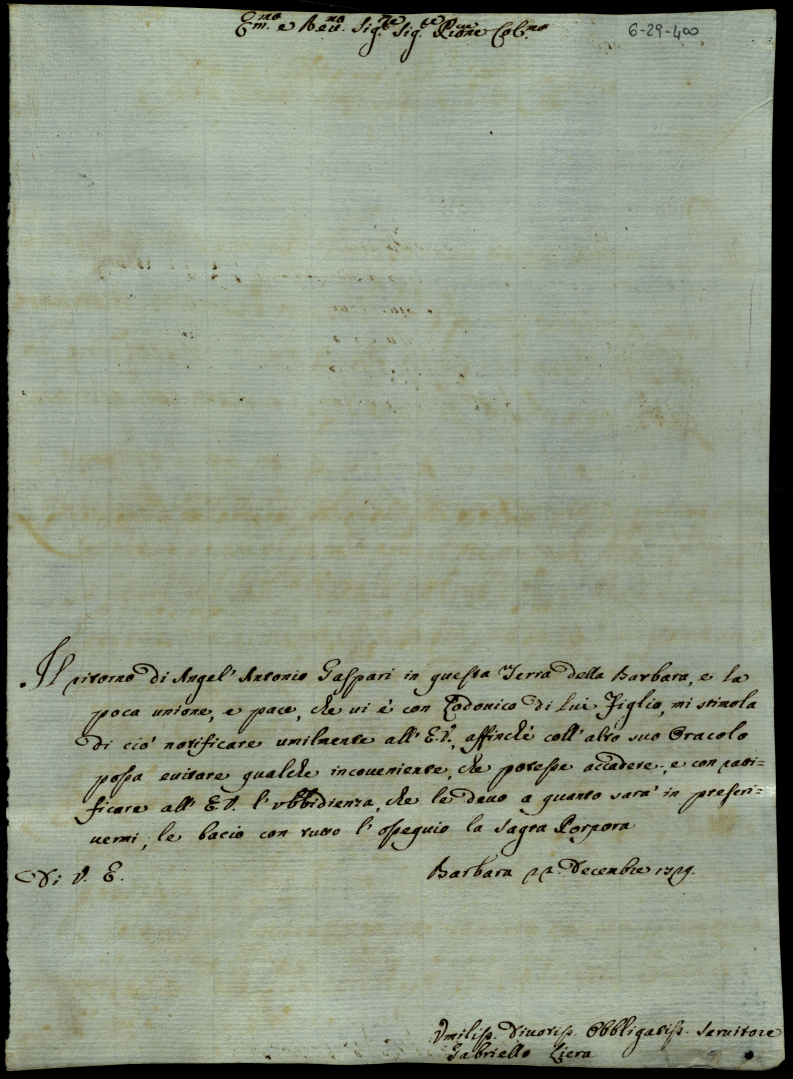 Em.mo e Rev.mo Sig.re Sig.re P.rone Col.mo
6-29-400
Il ritorno di Angel' Antonio Gaspari in questa Terra della Barbara, e la
poca unione, e pace, che vi è con Lodovico di lui Figlio, mi stimola
di ciò notificare umilmente all' E.V., affinchè coll' alto suo Oracolo
possa evitare qualche inconveniente, che potesse accadere; e con rati=
ficare all' E.V. l' ubbidienza, che le devo a quanto sarà in prescri=
vermi; le bacio con tutto l' ossequio la Sagra Porpora
Di V. E.
Barbara 22. Decembre 1729.
Vmiliss. Divotiss. Obbligatiss. Servitore
Gabriello Liera